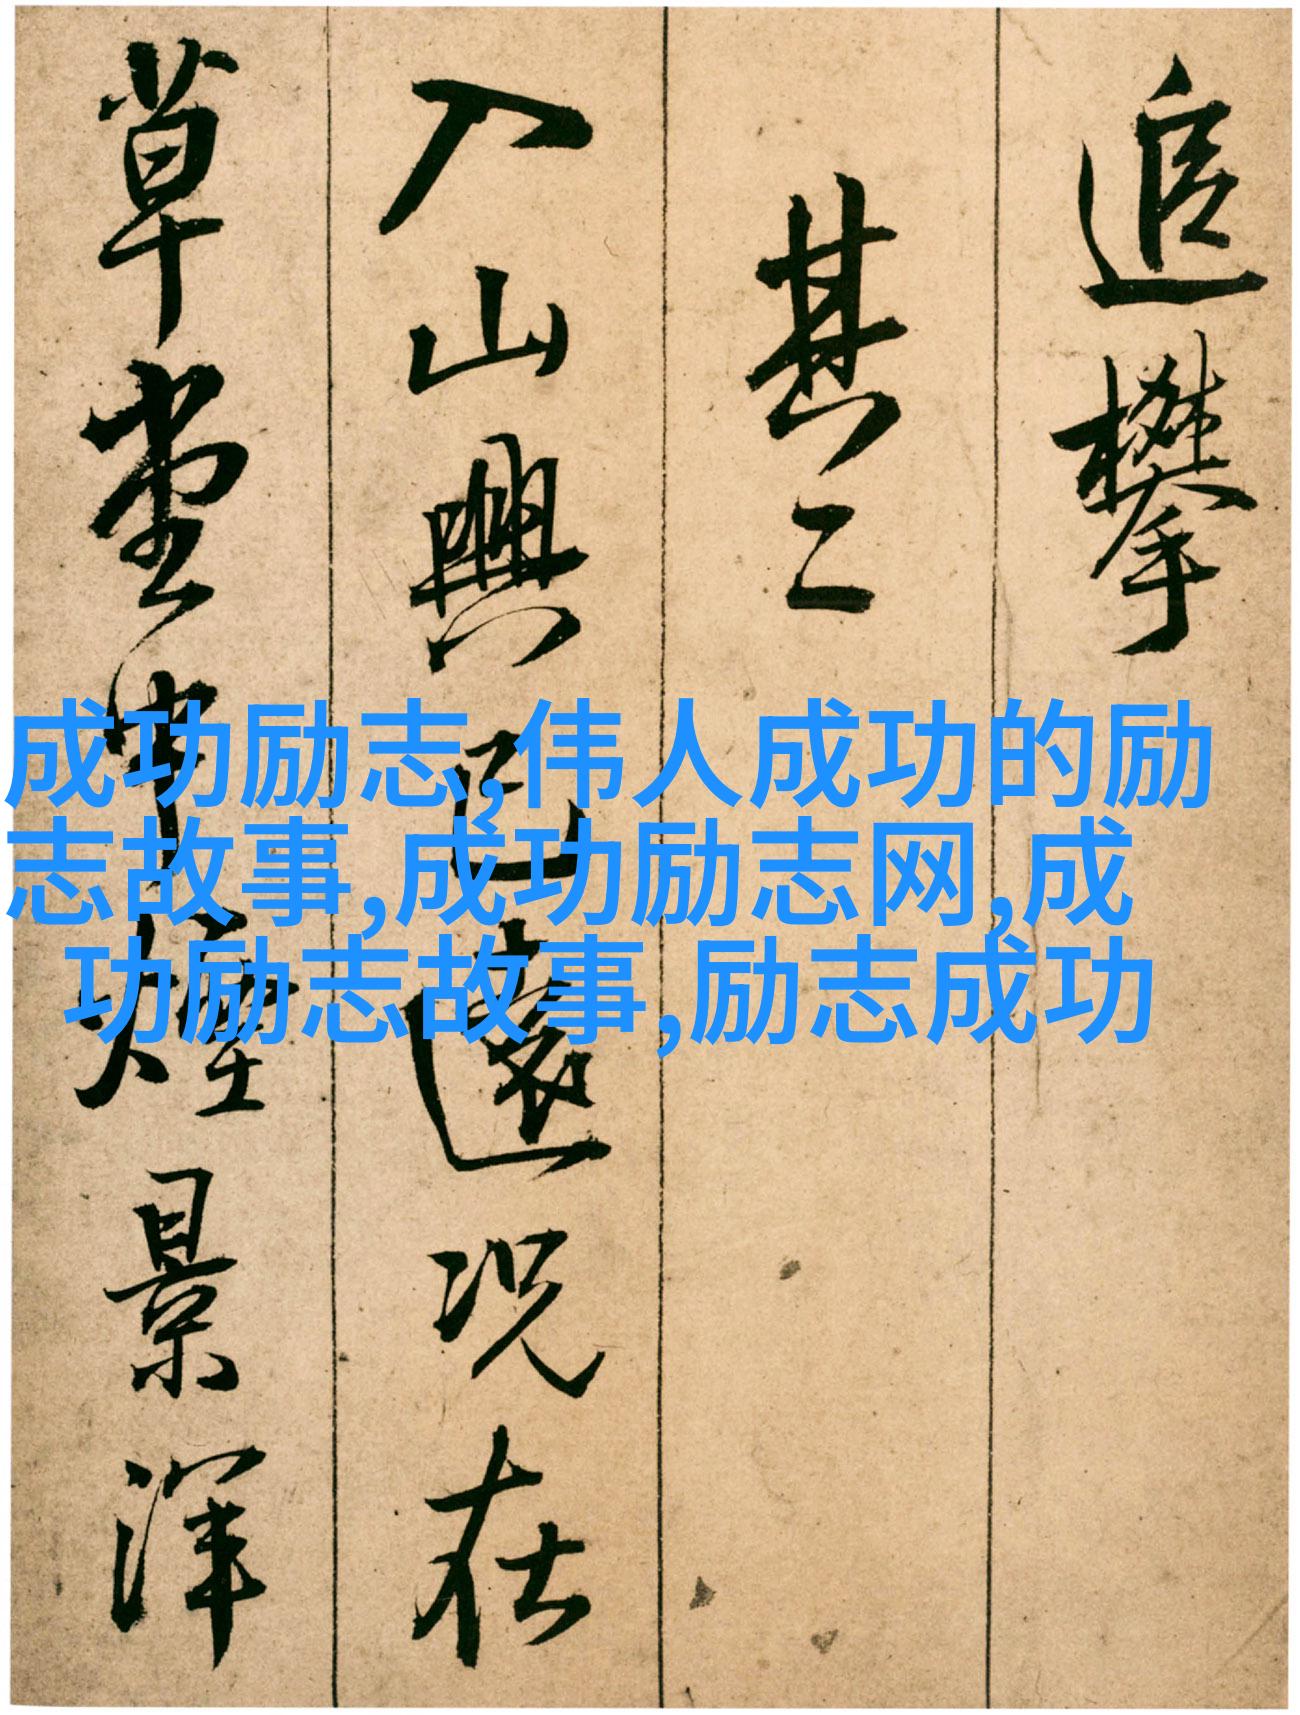 追攀
其二
入山興已遠况在
草堂中煙景渾
成功励志,伟人成功的励
志故事,成功励志网,成
功励志故事,励志成功